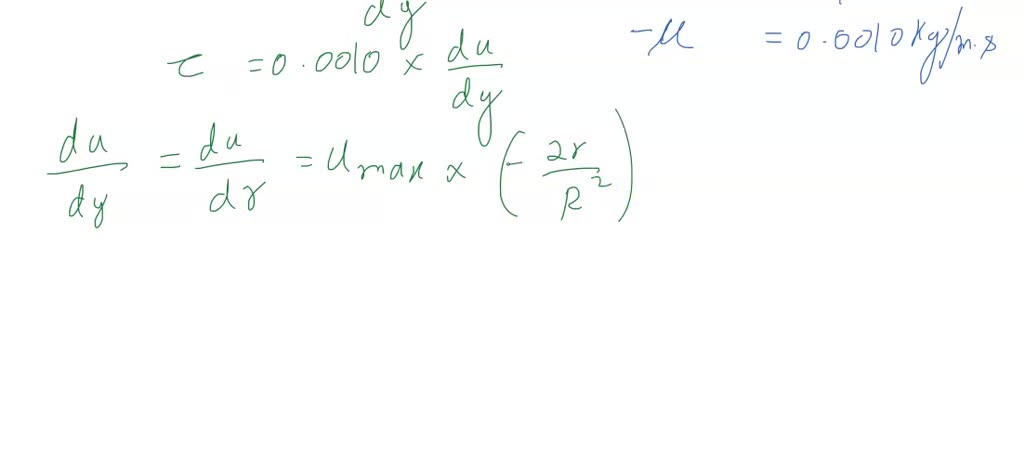 dy
τ = 0.0010 × du/dy
-μ = 0.0010 Kg/m.s
du/dy = du/dr = Umax × (- 2r/R²)